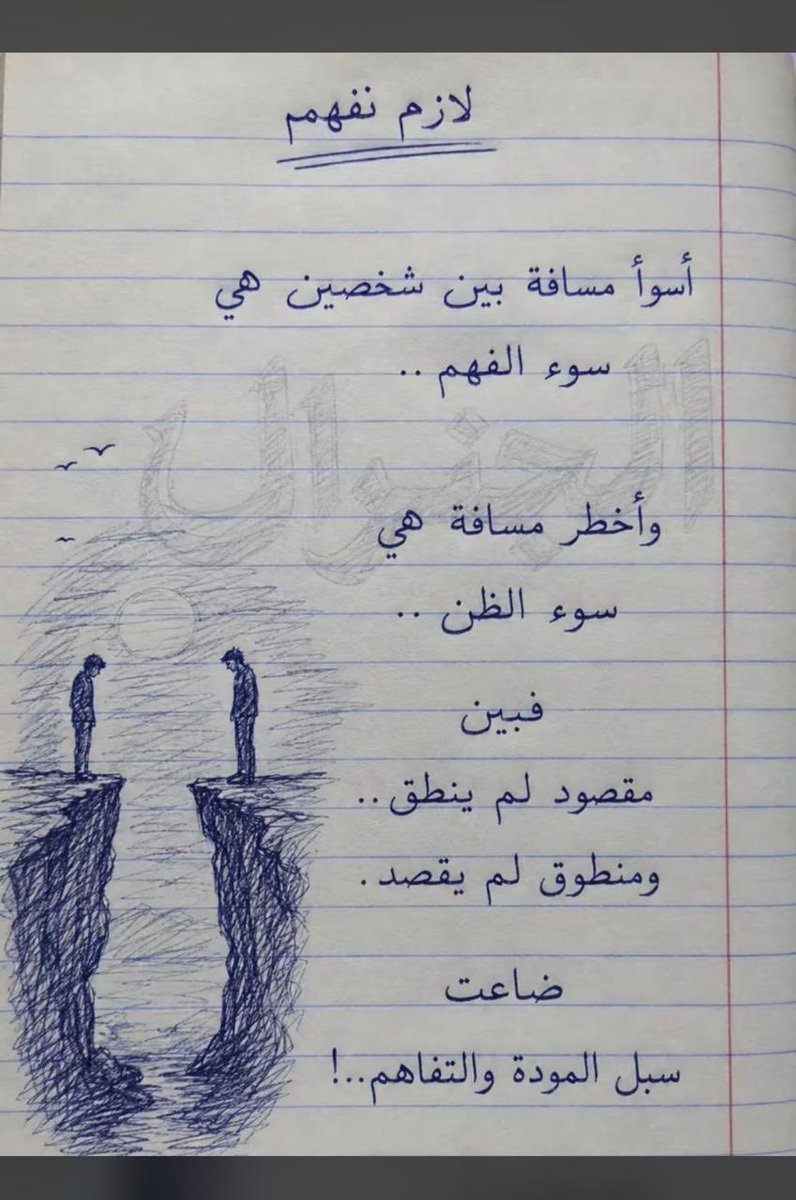 لازم نفهم
أسوأ مسافة بين شخصين هي
سوء الفهم ..
الجنرال
وأخطر مسافة هي
سوء الظن ..
فبين
مقصود لم ينطق..
ومنطوق لم يقصد.
ضاعت
سبل المودة والتفاهم..!